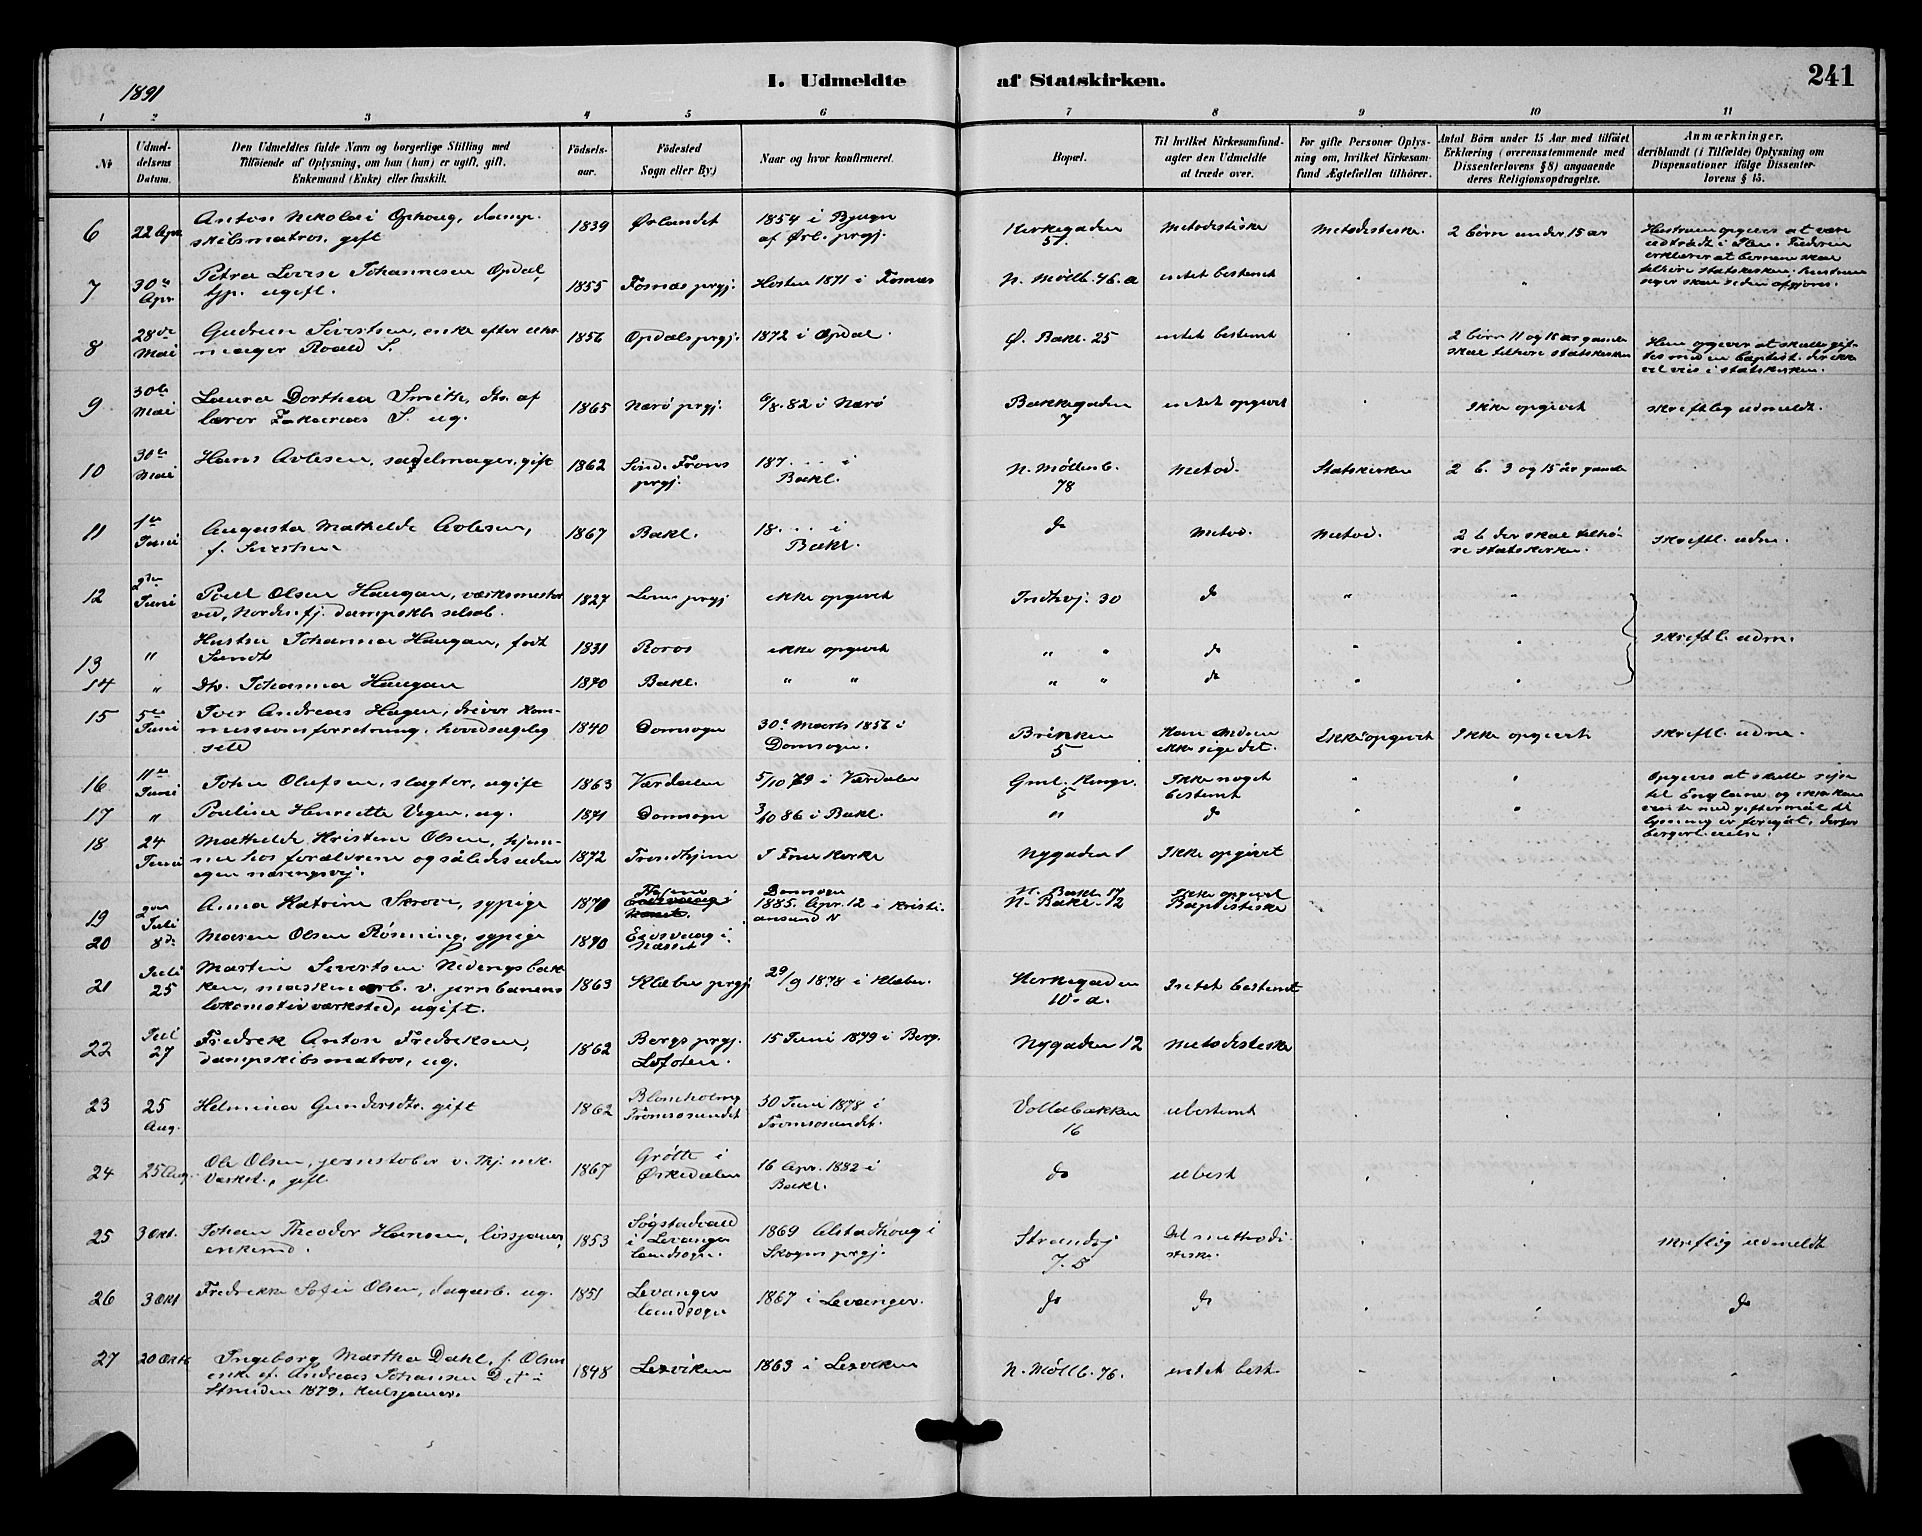 1891
I. Udmeldte af Statskirken.
241
1 2 3 4 5 6 7 8 9 10 11
No
Udmel-
delsens
Datum.
Den Udmeldtes fulde Navn og borgerlige Stilling med
Tilföiende af Oplysning, om han (hun) er ugift, gift,
Enkemand (Enke) eller fraskilt.
Födsels-
aar.
Födested
Sogn eller By.)
Naar og hvor konfirmeret.
Bopæl.
Til hvilket Kirkesamfund-
agter den Udmeldte
at træde over.
For gifte Personer Oplys-
ning om, hvilket Kirkesam-
fund Ægtefællen tilhörer.
Antal Börn under 15 Aar med tilföiet
Erklæring (overensstemmende med
Dissenterlovens § 8) angaaende
deres Religionsopdragelse.
Anmærkninger,
deriblandt (i Tilfælde) Oplysning om
Dispensationer ifölge Dissenter-
lovens § 15.
6 22 Apr. Anton Nikolai Ophoug, damp-
skibsmatros, gift
1839 Ørlandet 1854 i Bjugn
af Ørl. prgj.
Kirkegaden
57
Metodistiske Metodistiske. 2 børn under 15 år
Hustruen opgives at være
udtrådt i Faderen
erklærer at børnene skal
tilhøre statskirken; hustruen
siger skal siden afgjøres.
7 30te
Apr
Petra Lovise Johannesen Opdal,
tjp. ugift.
1855 Fosnæs prgj. Høsten 1871 i Fosnæs N. Møllb. 46. a intet bestemt " "
8 28de
Mai
Gudrun Sivertsen, enke efter
mager Roald S.
1856 Opdals prgj. 1872 i Opdal. Ø. Bakl. 25 intet bestemt "
2 börn 11 og år gamle
skal tilhøre statskirken
Hun opgiver at skulle gif-
tes med en baptist, der ikke
vil vies i statskirken.
9 30te
Mai
Laura Dorthea Smith, dtr. af
lærer Zakarias S. ug.
1865 Nærö prgj. 6/8. 82 i Nærö Bakkegaden
7
intet opgivet " Ikke opgivet skriftlig udmeldt.
10 30te
Mai
Hans Avlesen, sadelmager, gift 1862 Sönd. Frons
prgj.
187 . . . . i
Bakl.
N. Möllenb.
78
Metod. Statskirken 2 b. 3 og 15 år gamle
11 1ste
Juni
Augusta Mathilde Avlesen,
f. Sivertsen
1867 Bakl. 18. . . . i
Bakl.
do Metod. Metod. 2 b der skal tilhö-
re statskirken. skriftl. udm.
12 2den
Juni
Poul Olsen Haugan, værksmester
ved Nordenfj. dampskbs selsab.
1827 prgj ikke opgivet 30 do " "
13 " Hustru Johanna Haugan, født
Sundt
1831 Roros ikke opgivet " " do " " skriftl. udm.
14 " Dtr. Johanna Haugan 1870 Bakl. " " " " do " "
15 5te
Juni
Iver Andreas Hagen, driver kom-
missionsforretning, hovedsagelig
sild
1840 Domsogn 30. Marts 1856 i
Domsogn.
Brinken
5
Kan endnu
ikke sige det. Ikke opgivet Ikke opgivet skriftl. udm.
16 11te
Juni
John Olufsen, slagter, ugift 1863 Værdalen 5/10 79 i Værdalen Gml. Kongv.
5
Ikke noget
bestemt " "
Opgives at skulle rejse
til England og ikke kan
vente med giftermål til
lysning er foregået, derfor
borgerl. vielse.
17 " Pauline Henriette Vegen, ug. 1871 Domsogn 3/10 86 i Bakl. " do " "
18 24
Juni
Mathilde Kristine Olsen, hjem-
me hos forældrene og således uden
egen næringsvej.
1872 Trondhjem I Frue Kirke Nygaden 1 Ikke opgivet
19 2den
Juli
Anna Katrine Skrove, sypige 1870 Domsogn
1885. Apr. 12 i Kristi-
ansund N
N. Bakl. 17
N. Bakl. 12
Ikke opgivet
Baptistiske
20 8de Maren Olsen Rösming, sypige 1870 Eidsvaag i
Næsset
21 Juli
25
Martin Sivertsen Nidengsbak-
ken, maskinarb. v. jernbanens
lokomotivværksted, ugift.
1863 Klæbu prgj. 29/9 1878 i Klæbu. Kirkegaden
10. a.
Intet bestemt
22 Juli
27
Fredrik Anton Fredriksen,
dampskibsmatros, ug.
1862 Bergs prgj.
Lofoten.
15 Juni 1879 i Berg. Nygaden 12 Metodistiske
23 25
Aug.
Helmina Gundersdtr. gift 1862 Blomholmg
Tromsosundet
30 Juni 1878 i
Tromsosundet.
Vollabakken
16
ubestemt
24 25 Aug. Ole Olsen, jernstober v. Thj. mk.
Værkst., gift.
1867 Grötte i
Ørkedalen
16 Apr. 1882 i
Bakl.
do ubest
25 3 Okt. Johan Theodor Hansen, lössjauer,
enkemd.
1853 Søgstadvald
i Levanger
landsogn.
1869 Alstadhoug i
Skogns prgj.
Strandvj
7. b
Det mettodi-
stiske. skriftlig udmeldt
26 3 Okt Fredrikke Sofie Olsen, dagarb. ug. 1851 Levanger
landsogn
1867 i Levanger. do do do
27 20 Okt. Ingeborg Martha Dahl, f. Olsen
enke ef. Andreas Johansen D. †i
Strinden 1879, kulsjauer.
1848 Lexviken 1863 i Lexviken N. Möllb. 76. intet best.